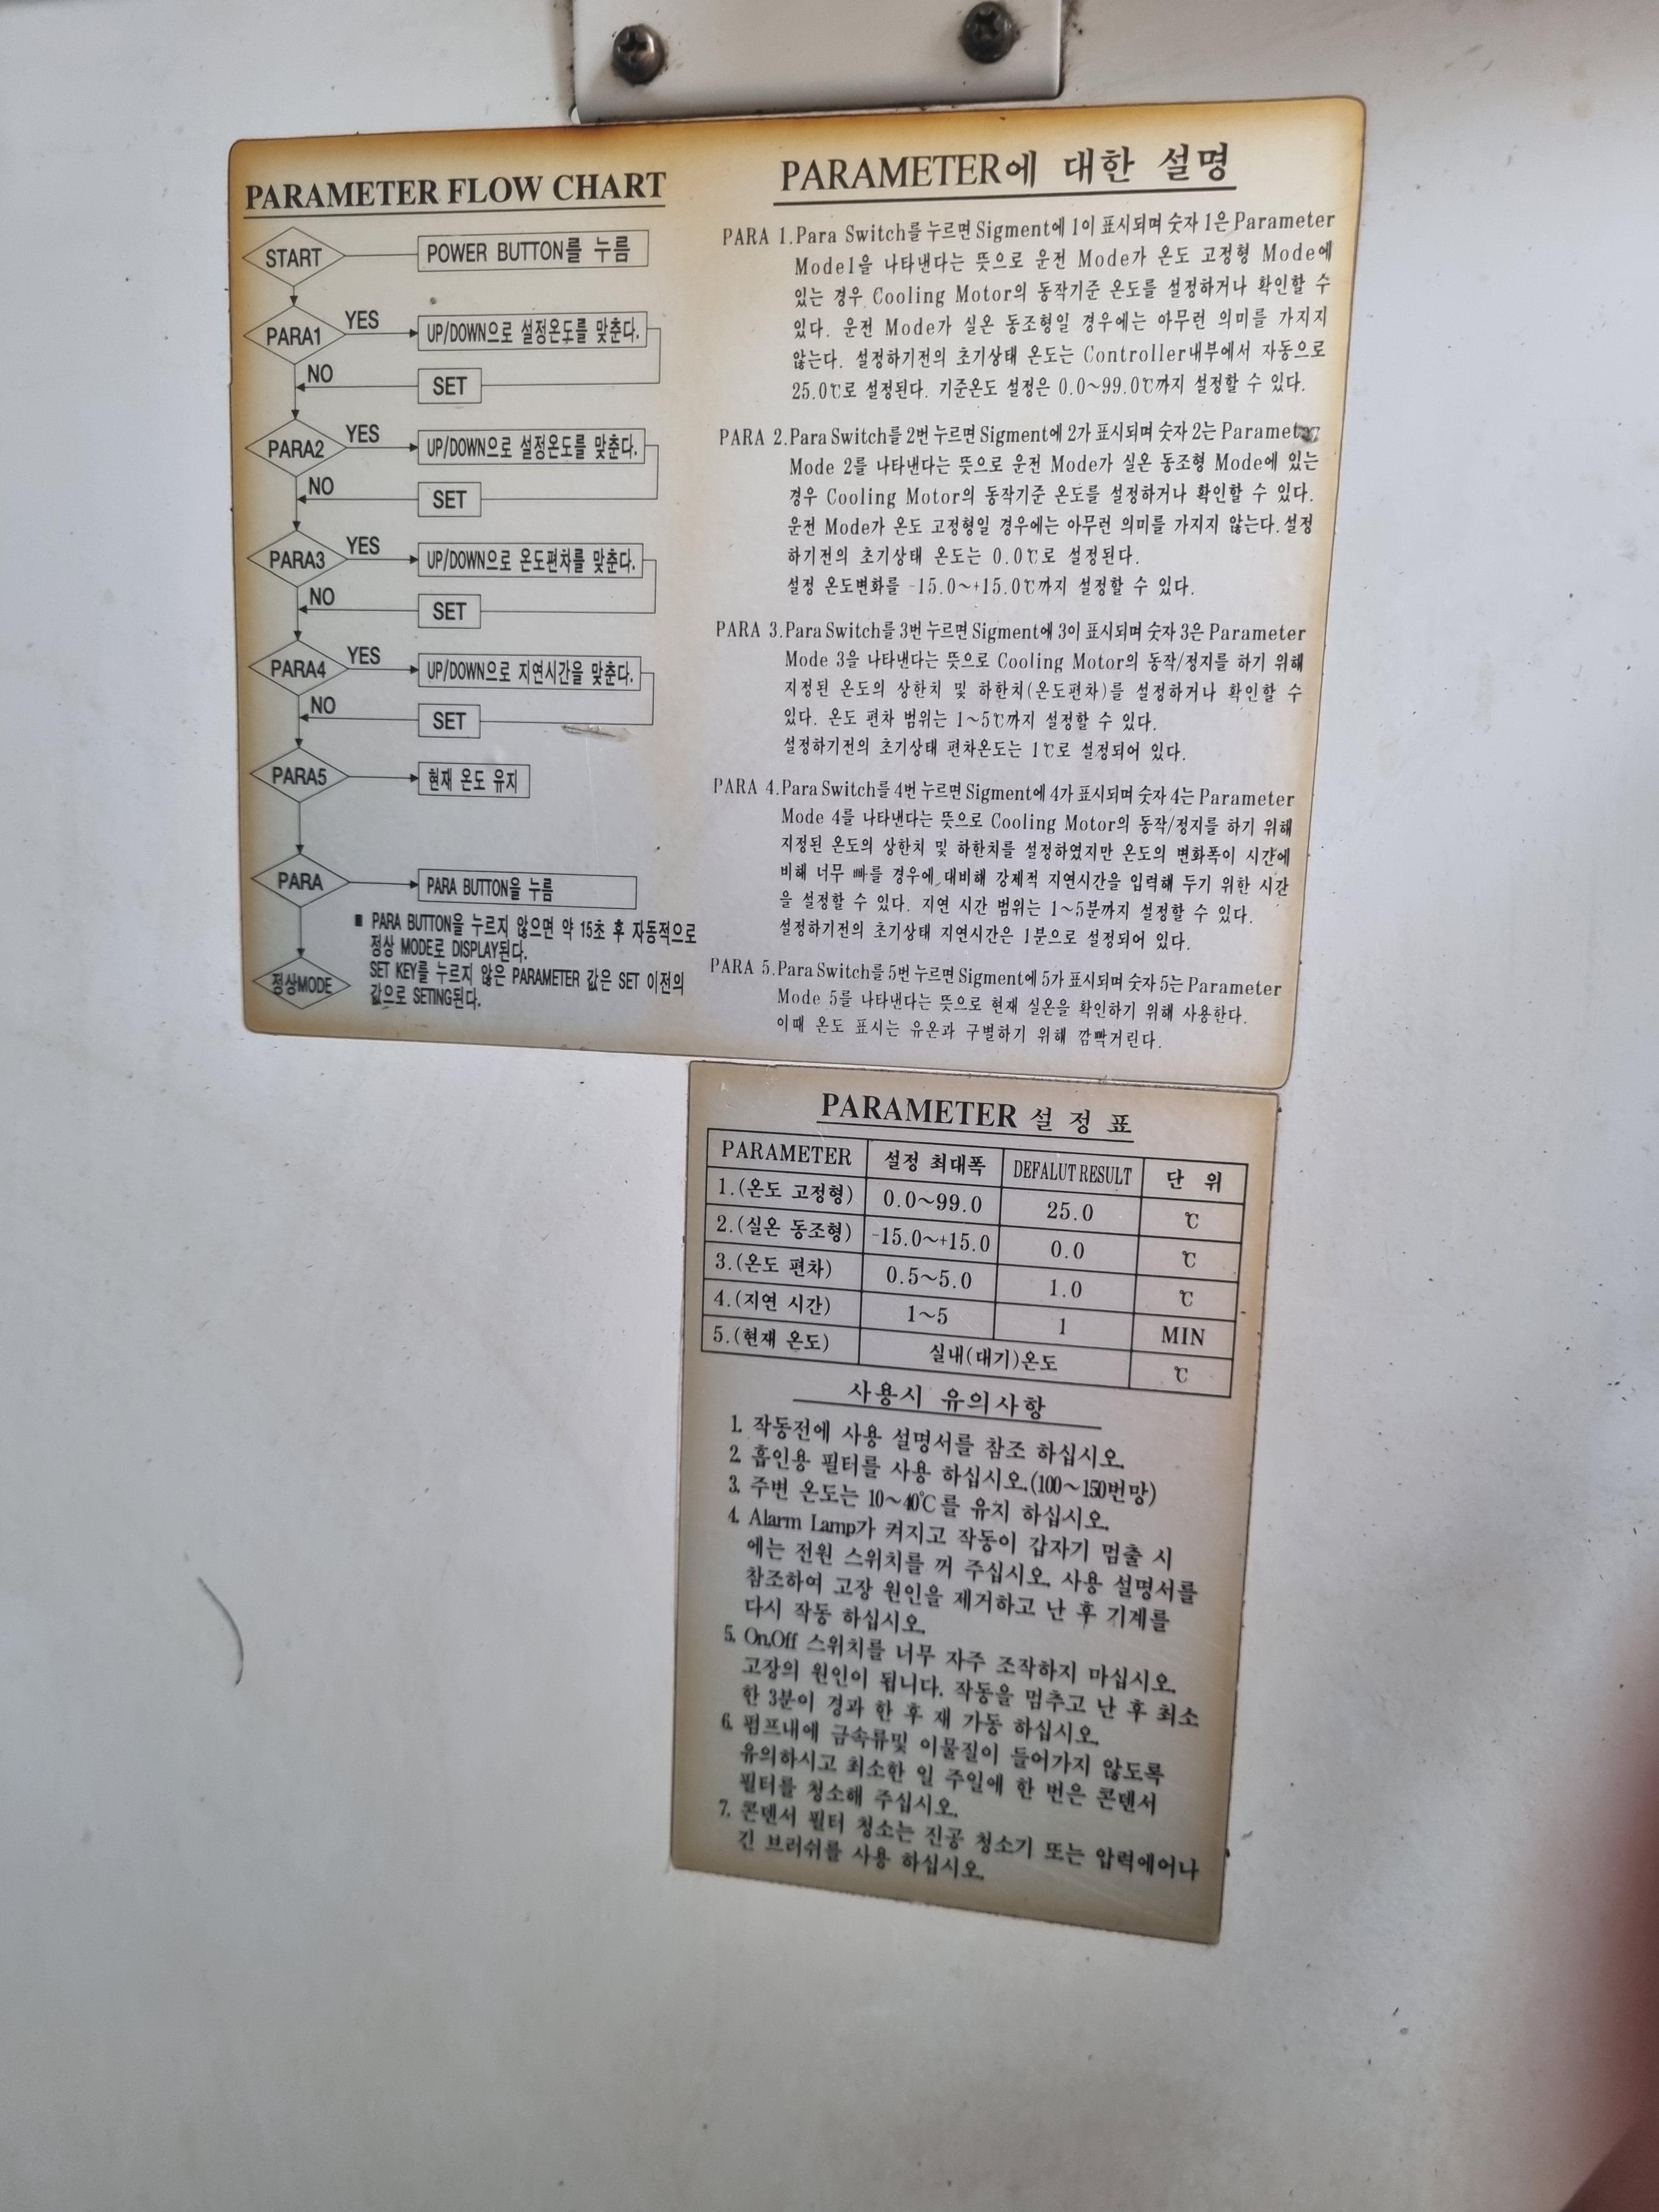 PARAMETER FLOW CHART
START
POWER BUTTON를 누름
PARA1
YES
UP/DOWN으로 설정온도를 맞춘다.
NO
SET
PARA2
YES
UP/DOWN으로 설정온도를 맞춘다.
NO
SET
PARA3
YES
UP/DOWN으로 온도편차를 맞춘다.
NO
SET
PARA4
YES
UP/DOWN으로 지연시간을 맞춘다.
NO
SET
PARA5
현재 온도 유지
PARA
PARA BUTTON을 누름
■ PARA BUTTON을 누르지 않으면 약 15초 후 자동적으로
정상 MODE로 DISPLAY된다.
SET KEY를 누르지 않은 PARAMETER 값은 SET 이전의
값으로 SETING된다.
정상MODE
PARAMETER에 대한 설명
PARA 1.Para Switch를 누르면 Sigment에 1이 표시되며 숫자 1은 Parameter
Mode1을 나타낸다는 뜻으로 운전 Mode가 온도 고정형 Mode에
있는 경우 Cooling Motor의 동작기준 온도를 설정하거나 확인할 수
있다. 운전 Mode가 실온 동조형일 경우에는 아무런 의미를 가지지
않는다. 설정하기전의 초기상태 온도는 Controller내부에서 자동으로
25.0℃로 설정된다. 기준온도 설정은 0.0~99.0℃까지 설정할 수 있다.
PARA 2.Para Switch를 2번 누르면 Sigment에 2가 표시되며 숫자 2는
Mode 2를 나타낸다는 뜻으로 운전 Mode가 실온 동조형 Mode에 있는
경우 Cooling Motor의 동작기준 온도를 설정하거나 확인할 수 있다.
운전 Mode가 온도 고정형일 경우에는 아무런 의미를 가지지 않는다. 설정
하기전의 초기상태 온도는 0.0℃로 설정된다.
설정 온도변화를 -15.0~+15.0℃까지 설정할 수 있다.
PARA 3.Para Switch를 3번 누르면 Sigment에 3이 표시되며 숫자 3은 Parameter
Mode 3을 나타낸다는 뜻으로 Cooling Motor의 동작/정지를 하기 위해
지정된 온도의 상한치 및 하한치(온도편차)를 설정하거나 확인할 수
있다. 온도 편차 범위는 1~5℃까지 설정할 수 있다.
설정하기전의 초기상태 편차온도는 1℃로 설정되어 있다.
PARA 4.Para Switch를 4번 누르면 Sigment에 4가 표시되며 숫자 4는 Parameter
Mode 4를 나타낸다는 뜻으로 Cooling Motor의 동작/정지를 하기 위해
지정된 온도의 상한치 및 하한치를 설정하였지만 온도의 변화폭이 시간에
비해 너무 빠를 경우에 대비해 강제적 지연시간을 입력해 두기 위한 시간
을 설정할 수 있다. 지연 시간 범위는 1~5분까지 설정할 수 있다.
설정하기전의 초기상태 지연시간은 1분으로 설정되어 있다.
PARA 5.Para Switch를 5번 누르면 Sigment에 5가 표시되며 숫자 5는 Parameter
Mode 5를 나타낸다는 뜻으로 현재 실온을 확인하기 위해 사용한다.
이때 온도 표시는 유온과 구별하기 위해 깜빡거린다.
PARAMETER 설 정 표
PARAMETER 설정 최대폭 DEFALUT RESULT 단 위
1.(온도 고정형) 0.0~99.0 25.0 ℃
2.(실온 동조형) -15.0~+15.0 0.0 ℃
3.(온도 편차) 0.5~5.0 1.0 ℃
4.(지연 시간) 1~5 1 MIN
5.(현재 온도) 실내(대기)온도 ℃
사용시 유의사항
1. 작동전에 사용 설명서를 참조 하십시오.
2. 흡인용 필터를 사용 하십시오.(100~150번망)
3. 주변 온도는 10~40℃를 유지 하십시오.
4. Alarm Lamp가 켜지고 작동이 갑자기 멈출 시
에는 전원 스위치를 꺼 주십시오. 사용 설명서를
참조하여 고장 원인을 제거하고 난 후 기계를
다시 작동 하십시오.
5. On,Off 스위치를 너무 자주 조작하지 마십시오.
고장의 원인이 됩니다. 작동을 멈추고 난 후 최소
한 3분이 경과 한 후 재 가동 하십시오.
6. 펌프내에 금속류및 이물질이 들어가지 않도록
유의하시고 최소한 일 주일에 한 번은 콘덴서
필터를 청소해 주십시오.
7. 콘덴서 필터 청소는 진공 청소기 또는 압력에어나
긴 브러쉬를 사용 하십시오.